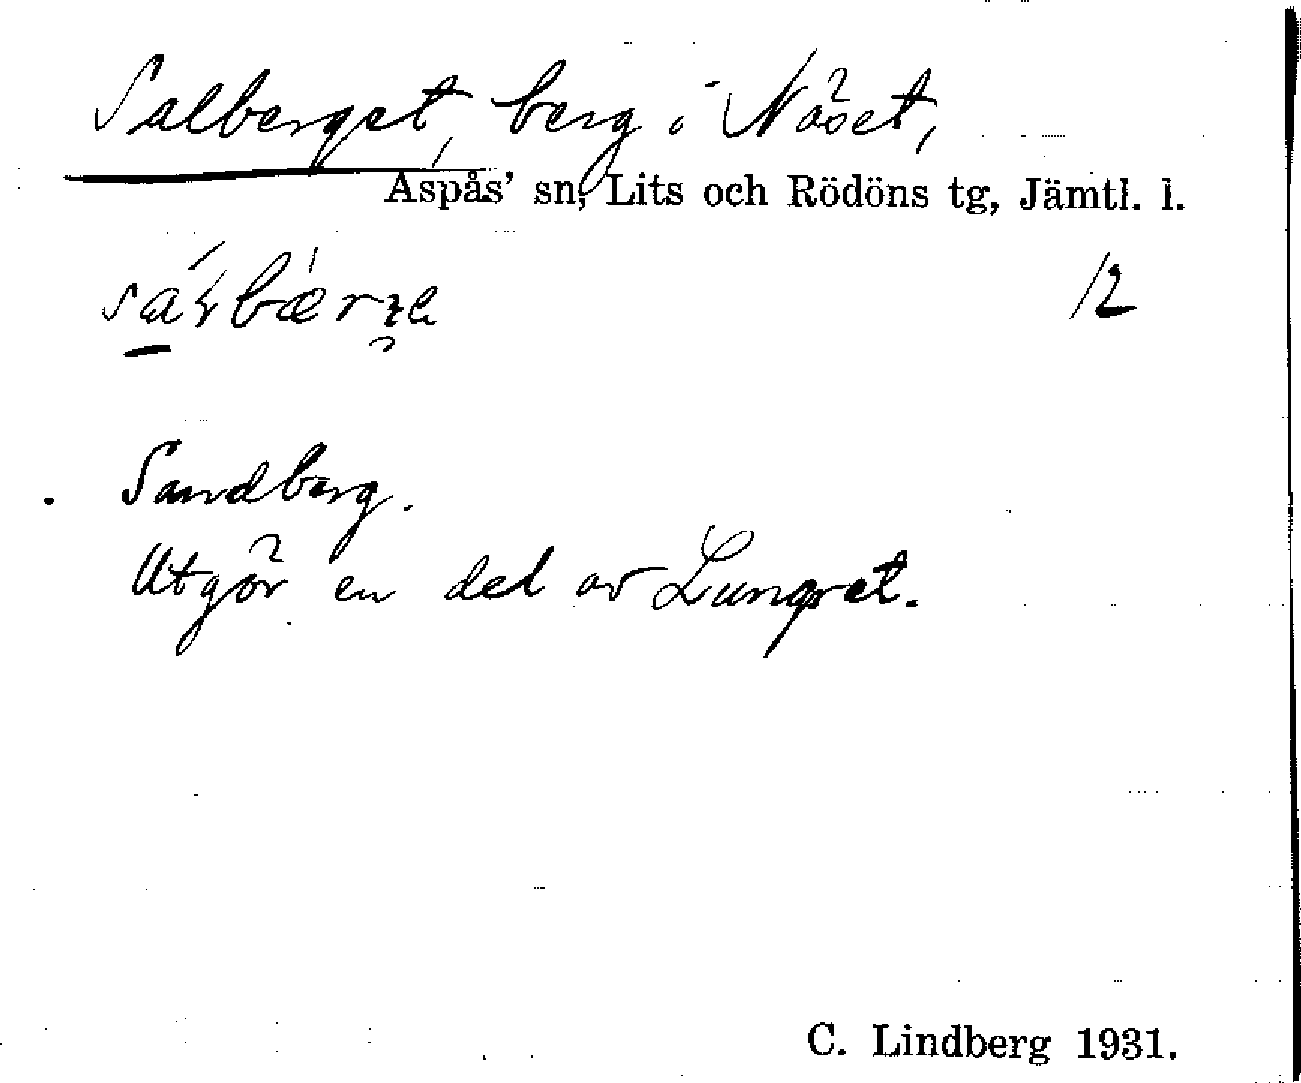 Salberget, berg i Näset,
Aspås' sn, Lits och Rödöns tg, Jämtl. l.
12
Sandberg.
Utgör en del av Lungret.
C. Lindberg 1931.